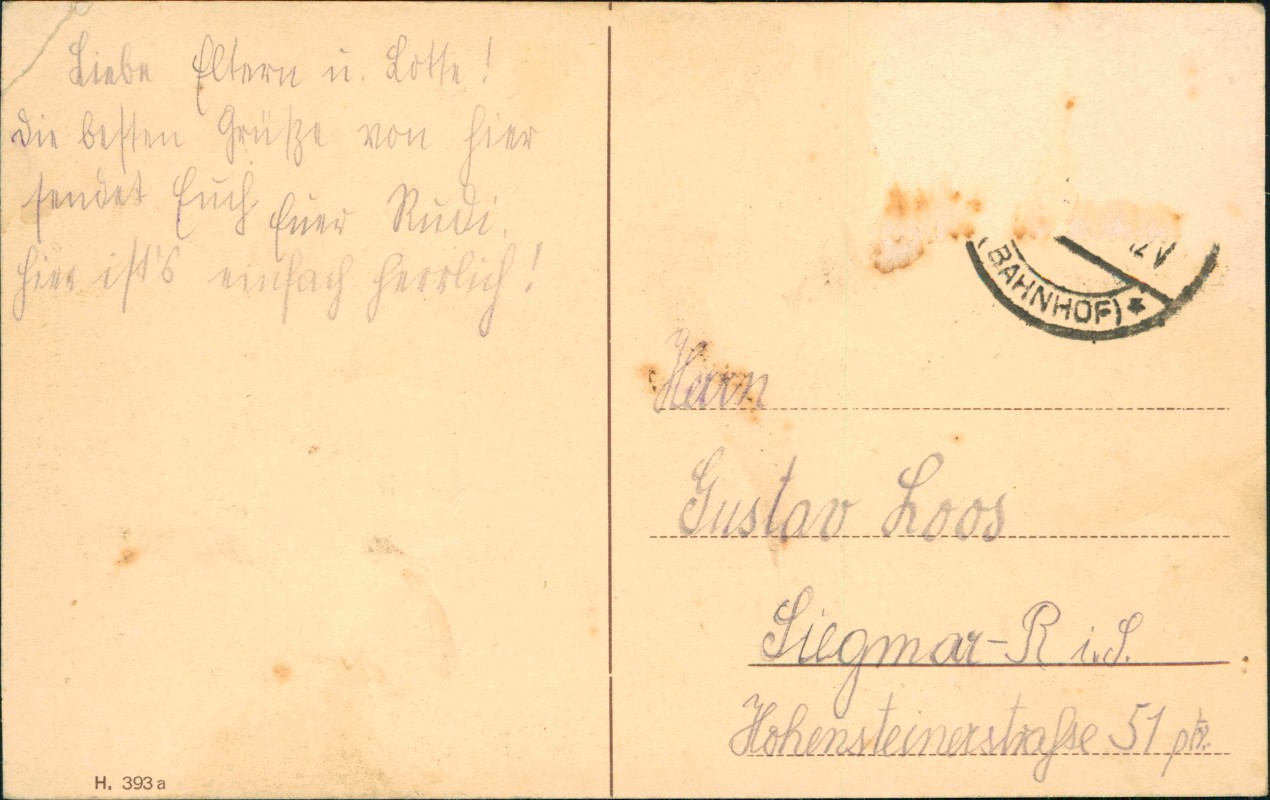 Liebe Eltern u. Lotte!
Die besten Grüße von hier
sendet Euch Euer Rudi.
Hier ist's einfach herrlich!
H. 393 a
12 V
(BAHNHOF) *
Herrn
Gustav Loos
Siegmar-R i. S.
Hohensteinerstraße 51 ptr.